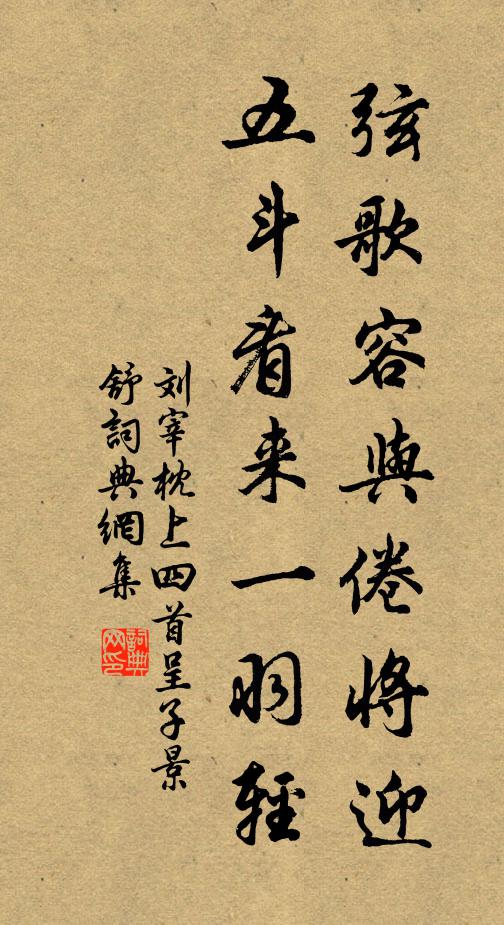 弦歌容與倦將迎
五斗看来一羽輕
刘宰枕上四首呈子景
舒詞典網集
詞典
网印